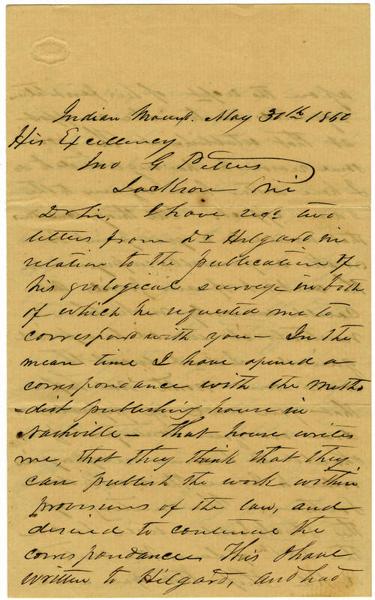 Indian Mound. May 30th 1860
His Excellency
Jno J. Pettus
Jackson Mi
Dr Sir, I have recd two
letters from Dr Hilgard in
relation to the publication of
his geological survey in both
of which he requested me to
correspond with you - In the
mean time I have opened a
correspondance with the Metho
-dist publishing house in
Nashville - that house writes
me, that they think that they
can publish the work within
provisions of the law, and
desired to continue the
correspondance. This I have
written to Hilgard, and had